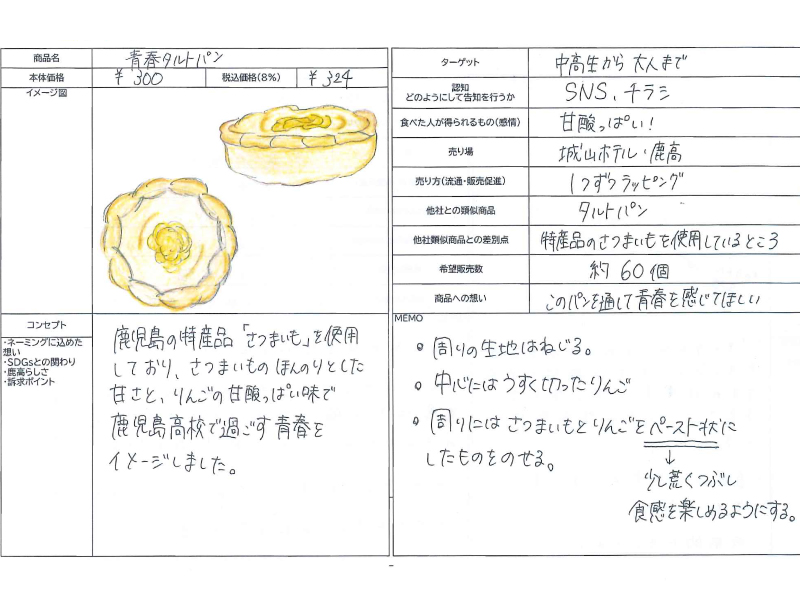 商品名 青春タルトパン
本体価格 ¥300 税込価格(8%) ¥324
イメージ図
コンセプト
・ネーミングに込めた
想い
・SDGsとの関わり
・鹿高らしさ
・訴求ポイント
鹿児島の特産品「さつまいも」を使用
しており、さつまいものほんのりとした
甘さと、りんごの甘酸っぱい味で
鹿児島高校で過ごす青春を
イメージしました。
ターゲット 中高生から大人まで
認知
どのようにして告知を行うか SNS、チラシ
食べた人が得られるもの(感情) 甘酸っぱい!
売り場 城山ホテル・鹿高
売り方(流通・販売促進) 1つずつラッピング
他社との類似商品 タルトパン
他社類似商品との差別点 特産品のさつまいもを使用しているところ
希望販売数 約60個
商品への想い このパンを通して青春を感じてほしい
MEMO
• 周りの生地はねじる。
• 中心にはうすく切ったりんご
• 周りにはさつまいもとりんごをペースト状に
したものをのせる。
↓
少し荒くつぶし
食感を楽しめるようにする。